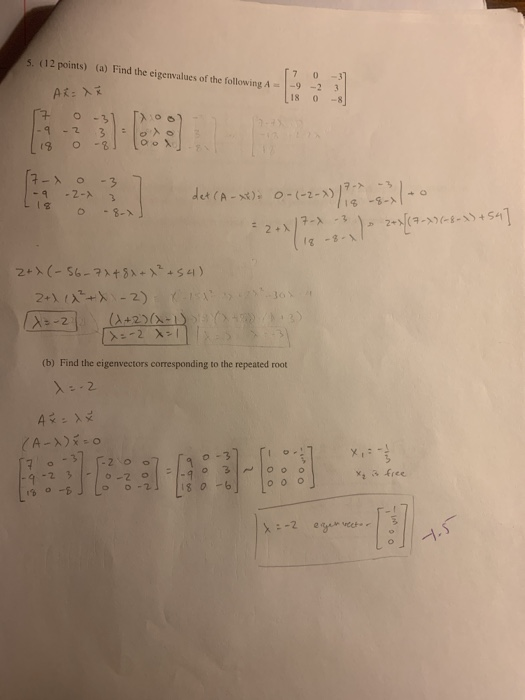 5. (12 points) (a) Find the eigenvalues of the following A = [7 0 -3; -9 -2 3; 18 0 -8]
Ax⃗ = λx⃗
[7 0 -3; -9 -2 3; 18 0 -8] = [λ 0 0; 0 λ 0; 0 0 λ]
[7-λ 0 -3; -9 -2-λ 3; 18 0 -8-λ]
det(A - λI) = 0 - (-2-λ) |7-λ -3; 18 -8-λ| + 0
= 2+λ |7-λ -3; 18 -8-λ| = 2+λ[(7-λ)(-8-λ)+54]
2+λ(-56-7λ+8λ+λ²+54)
2+λ(λ²+λ-2)
λ=-2 (λ+2)(λ-1)
λ=-2 λ=1
(b) Find the eigenvectors corresponding to the repeated root
λ=-2
Ax⃗ = λx⃗
(A-λ)x⃗=0
[7 0 -3; -9 -2 3; 18 0 -8] - [-2 0 0; 0 -2 0; 0 0 -2] = [9 0 -3; -9 0 3; 18 0 -6] ~ [1 0 -1/3; 0 0 0; 0 0 0]
x₁ = -1/3
is free
λ=-2 eigenvector [-1/3; 0; 0]